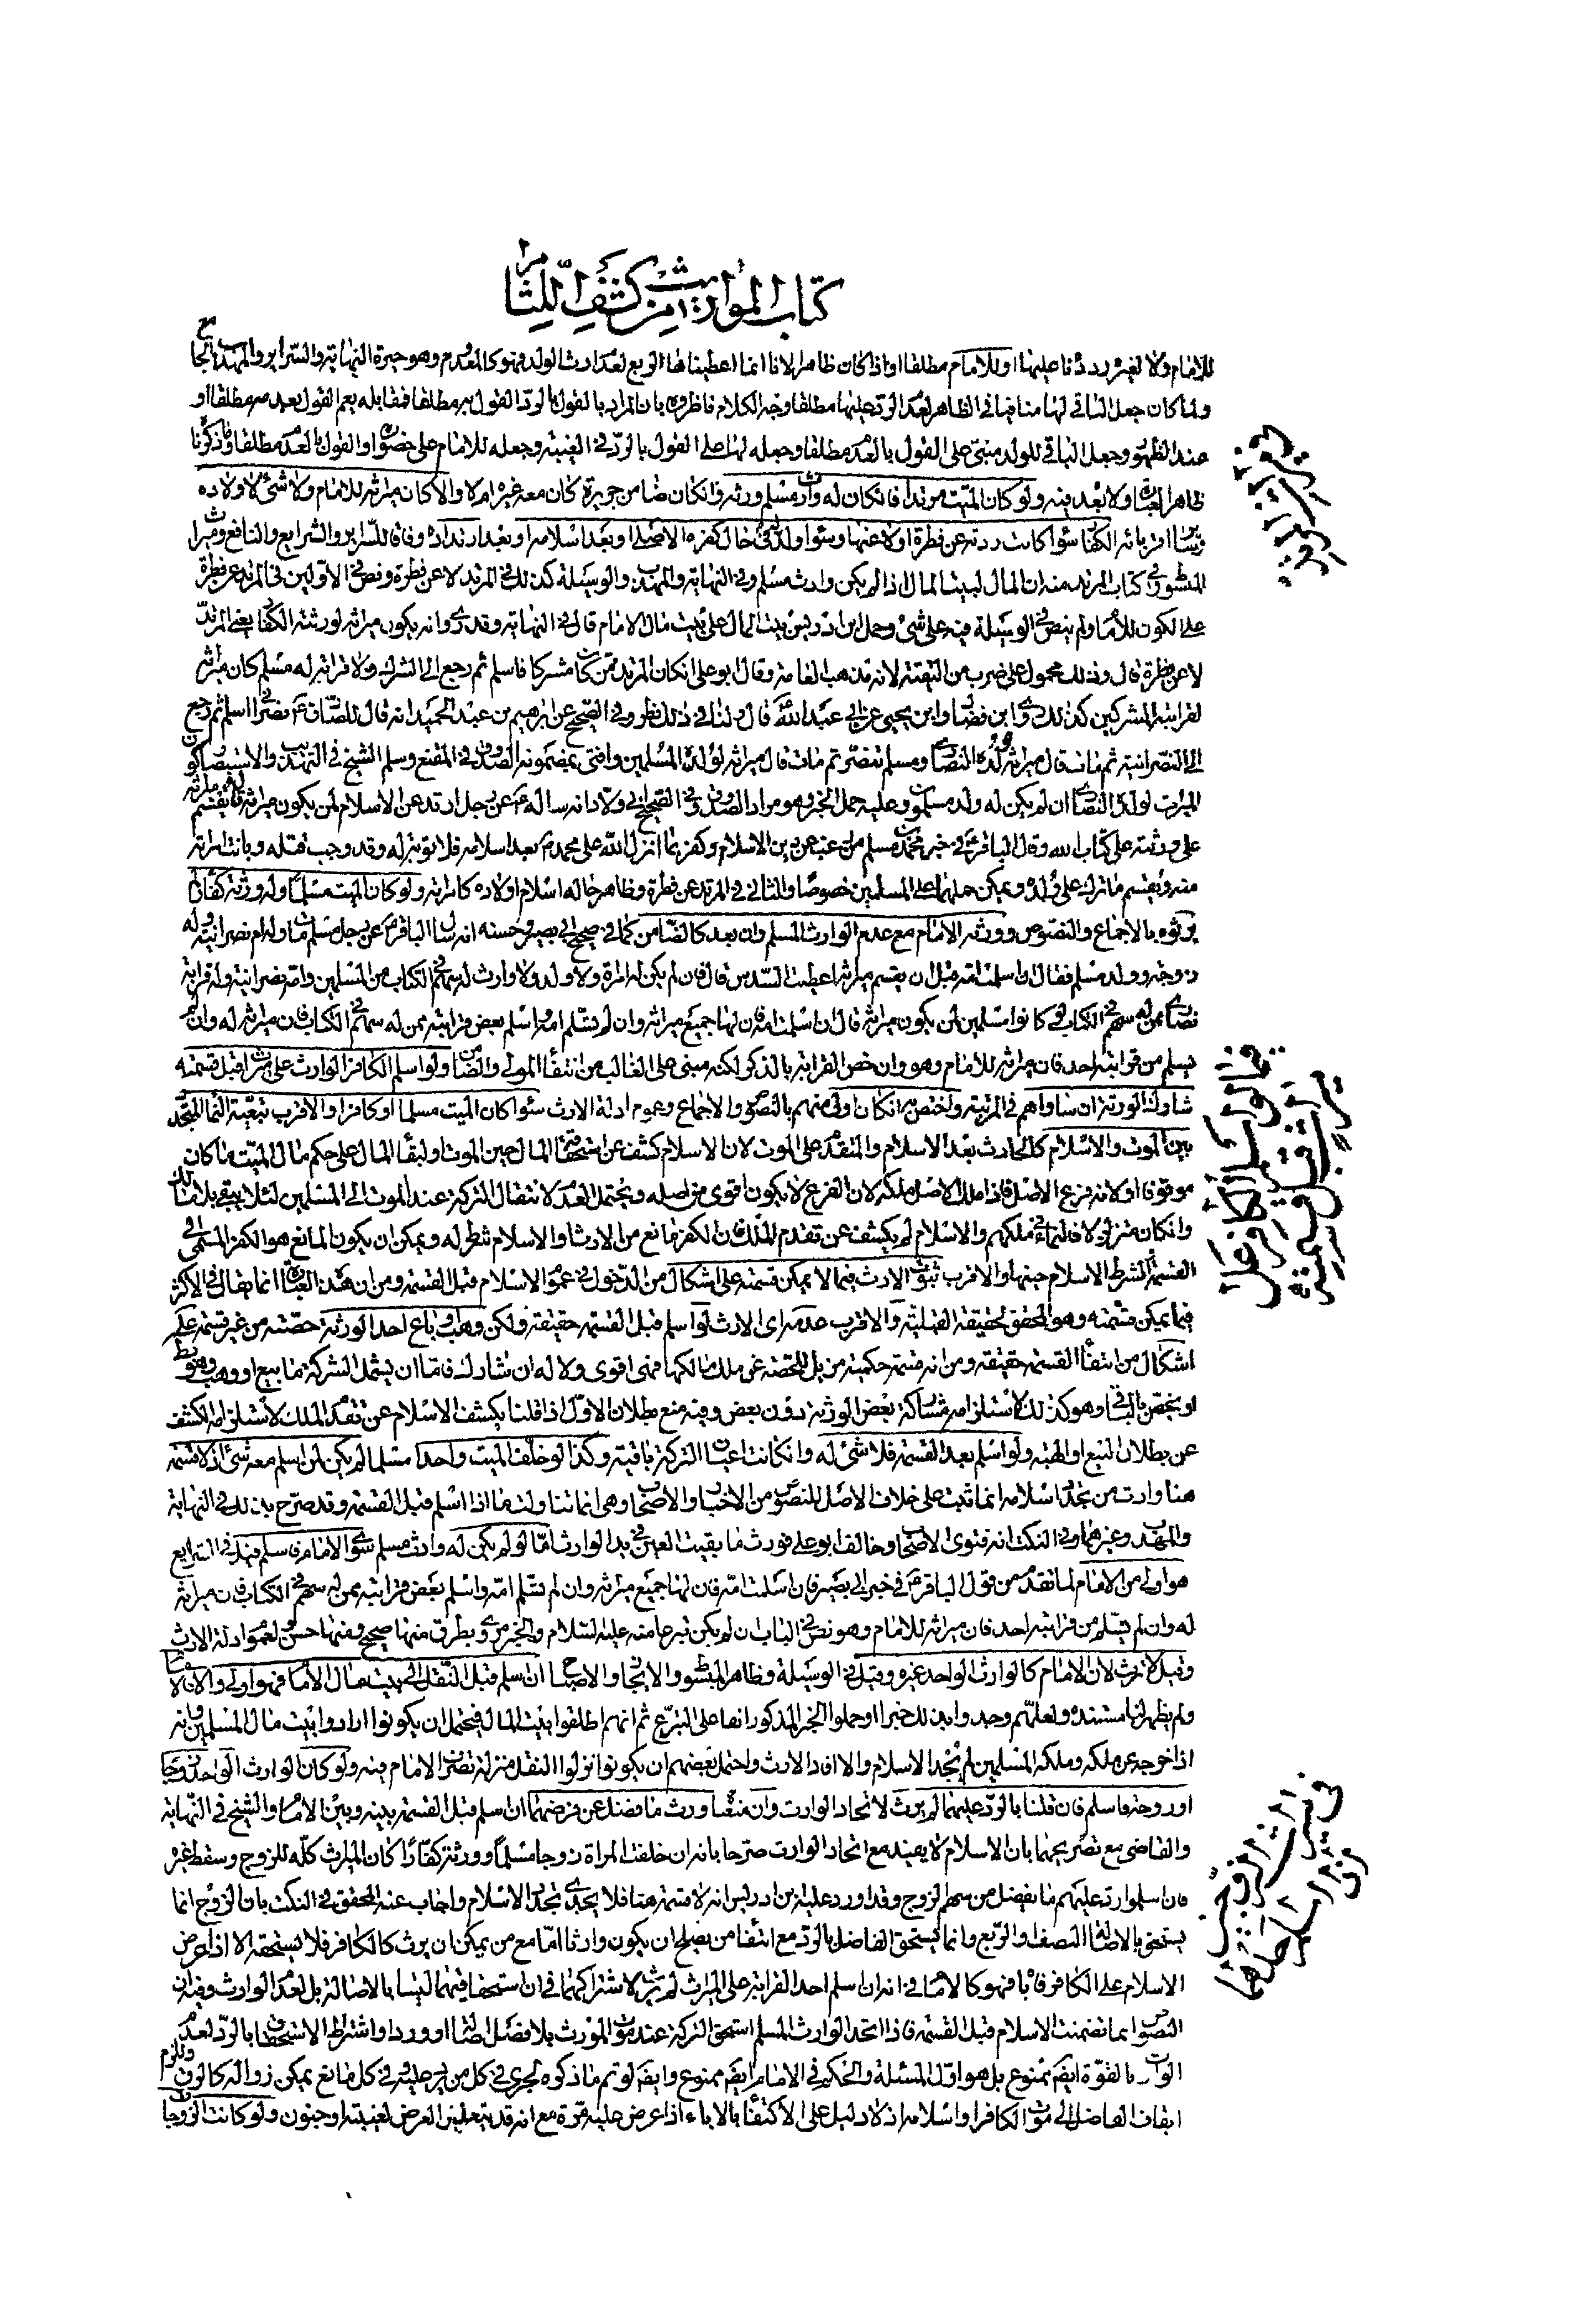 كتاب المواريث من كشف اللثام
للامام ولا لغيره رددنا عليها او للامام مطلقا او اذا كان ظاهرا لانا انما اعطيناها الربع لعدم ارث الولد فهو كالمعدوم وهو خيرة النهاية والسرائر والمهذب
ولما كان جعل الباقي لها منافيا في الظاهر لعدم الرد عليها مطلقا وجه الكلام فاظر وه بان المراد بالقول بالرد القول به مطلقا فمقابله يعم القول بعدمه مطلقا او
عند الظهور وجعل الباقي للولد مبني على القول بالعدم مطلقا وجعله لها على القول بالرد في الغيبة وجعله للامام على او القول بالعدم مطلقا وما ذكرنا
ظاهر العبارة ولا بعد فيه ولو كان الميت مرتدا فان كان له وارث مسلم ورثه وان كان ضامن جريرة كان معه غيره ام لا والا كان ميراثه للامام ولا شيء لاولاده
وسائر اقربائه الكفار سواء كانت ردته عن فطرة اولا عنها وسواء ولد له في حال كفره الاصلي او بعد اسلامه او بعد ارتداده وفاقا للسرائر والشرايع والنافع
المبسوط وفي كتاب المرتد منه ان المال لبيت المال اذا لم يكن وارث مسلم وفي النهاية والمهذب والوسيلة كذلك في المرتد لا عن فطرة ونص في الاولين في المرتد عن فطرة
على الكون للامام ولم ينص في الوسيلة فيه على شيء وحمل ابن ادريس بيت المال على بيت مال الامام قال في النهاية وقد روى انه يكون ميراثه لورثته الكفار يعني المرتد
لا عن فطرة قال وذلك محمول على ضرب من التقية لانه مذهب العامة وقال ابو علي ان كان المرتد ممن كان مشركا فاسلم ثم رجع الى الشرك ولا قرابة له مسلم كان ميراثه
لقرابته المشركين كذلك روى ابن فضال وابن يحيى عن ابي عبد الله قال ولنا في ذلك نظر وفي الصحيح عن ابراهيم بن عبد الحميد انه قال للصادق نصراني اسلم ثم رجع
الى النصرانية ثم مات قال ميراثه لولده النصارى ومسلم تنصر ثم مات قال ميراثه لولده المسلمين وافتى بمضمونه الصدوق في المقنع وسلم الشيخ في التهذيب والاستبصار كون
الميراث لولده النصارى ان لم يكن له ولد مسلمون وعليه حمل الخبر وهو مراد الصدوق وفي الصحيح عن ابي ولاد انه سأله عن رجل ارتد عن الاسلام لمن يكون ميراثه قال يقسم ميراثه
على ورثته على كتاب الله وقال الباقر في خبر محمد بن مسلم من رغب عن دين الاسلام وكفر بما انزل الله على محمد بعد اسلامه فلا توبة له وقد وجب قتله وبانت امرأته
منه ويقسم ما ترك على ولده ويمكن حملهما على المسلمين خصوصا والثاني في المرتد عن فطرة وظاهر حاله اسلام اولاده كامرأته ولو كان الميت مسلما وله ورثة كفار لم
يرثوه بالاجماع والنصوص وورثه الامام مع عدم الوارث المسلم وان بعد كالضامن كما في صحيح ابي بصير وحسنه انه سأل الباقر عن رجل مسلم مات وله ام نصرانية وله
زوجة وولد مسلم فقال ان اسلمت امه قبل ان يقسم ميراثه اعطيت السدس قال فان لم يكن له امرأة ولا ولد ولا وارث له سهم في الكتاب من المسلمين وامه نصرانية وله قرابة
نصارى ممن له سهم في الكتاب لو كانوا مسلمين لمن يكون ميراثه قال ان اسلمت امه فان لها جميع ميراثه وان لم تسلم امه واسلم بعض قرابته ممن له سهم في الكتاب فان ميراثه له وان لم
يسلم من قرابته احد فان ميراثه للامام وهو وان خص القرابة بالذكر لكنه مبني على الغالب من انتفاء المولى والضامن ولو اسلم الكافر الوارث على ميراث قبل قسمته
شارك الورثة ان ساواهم في المرتبة واختص به ان كان اولى منهم بالنصوص والاجماع وعموم ادلة الارث سواء كان الميت مسلما او كافرا والاقرب تبعية النماء المتجدد
بين الموت والاسلام كالحادث بعد الاسلام والمتقدم على الموت لان الاسلام كشف عن استحقاقه المال حين الموت او لبقاء المال على حكم مال الميت ما كان
موقوفا او لانه فرع الاصل فاذا ملك الاصل ملكه لان الفرع لا يكون اقوى من اصله ويحتمل العدم لانتقال التركة عند الموت الى المسلمين لئلا يبقى بلا مالك
وان كان متزلزلا فالنماء في ملكهم والاسلام لم يكشف عن تقدم الملك فان الكفر مانع من الارث او الاسلام شرط له ويمكن ان يكون المانع هو الكفر المستمر الى
القسمة والشرط الاسلام حينها والاقرب ثبوت الارث فيما لا يمكن قسمته على اشكال من الدخول في عموم الاسلام قبل القسمة ومن ان هذه العبارة انما يقال في الاكثر
فيما يمكن قسمته وهو المحقق لحقيقة القبلية والاقرب عدمه اي الارث لو اسلم قبل القسمة حقيقة ولكن وهب او باع احد الورثة حصته من غير قسمة على
اشكال من انتفاء القسمة حقيقة ومن انه قسمة حكمية مزيل للحصة عن ملك مالكها فهي اقوى ولا له ان شارك فاما ان يشمل الشركة ما بيع او وهب وهو بط
او يختص بالباقي وهو كذلك لاستلزامه مشاركة بعض الورثة دون بعض وفيه منع بطلان الاول اذا قلنا بكشف الاسلام عن تقدم الملك لاستلزامه الكشف
عن بطلان البيع او الهبة ولو اسلم بعد القسمة فلا شيء له وان كانت اعيان التركة باقية وكذا لو خلف الميت واحدا مسلما لم يكن لمن اسلم معه شيء اذ لا قسمة
هنا وارث من تجدد اسلامه انما ثبت على خلاف الاصل للنصوص من الاخبار والاصحاب وهي انما تناولت ما اذا اسلم قبل القسمة وقد صرح بذلك في النهاية
والمهذب وغيرهما وفي النكت انه فتوى الاصحاب وخالف ابو علي فورث ما بقيت العين في يد الوارث اما لو لم يكن له وارث مسلم سوى الامام فاسلم فهل في الشرايع
هو اولى من الامام لما تقدم من قول الباقر في خبر ابي بصير فان اسلمت امه فان لها جميع ميراثه وان لم تسلم امه واسلم بعض قرابته ممن له سهم في الكتاب فان ميراثه
له وان لم يسلم من قرابته احد فان ميراثه للامام وهو نص في الباب ان لم يكن تبرعا منه عليه السلام والخبر مروي بطرق منها صحيح ومنها حسن ولعموم ادلة الارث
وقيل لا يرث لان الامام كالوارث الواحد غيره وقيل في الوسيلة وظاهر المبسوط والايجاز والاصباح ان اسلم قبل النقل الى بيت مال الامام فهو اولى والا فلا
ولم يظهر لنا مستنده ولعلهم وجدوا بذلك خبرا او حملوا الخبر المذكور انفا على التبرع ثم انهم اطلقوا بيت المال فيحتمل ان يكونوا ارادوا بيت مال المسلمين وانه
اذا خرج عن ملكه وملكه المسلمين لم يجد الاسلام والا افاد الارث واحتمل بعضهم ان يكونوا نزلوا النقل منزلة تصرف الامام فيه ولو كان الوارث الواحد زوجا
او زوجة فاسلم فان قلنا بالرد عليهما لم يرث لاتحاد الوارث وان منعنا ورث ما فضل عن فرضهما ان اسلم قبل القسمة بينه وبين الامام والشيخ في النهاية
والقاضي مع تصريحهما بان الاسلام لا يفيد مع اتحاد الوارث صرحا بانه ان خلفت المرأة زوجا مسلما وورثة كفارا كان الميراث كله للزوج وسقط غيره
فان اسلموا رد عليهم ما يفضل من سهم الزوج وقد اورد عليه ابن ادريس انه لا قسمة هنا فلا يجدي تجدد الاسلام واجاب عنه المحقق في النكت بان الزوج انما
يستحق بالاصالة النصف او الربع وانما يستحق الفاضل بالرد مع انتفاء من يصلح ان يكون وارثا اما مع من يمكن ان يرث كالكافر فلا يستحقه الا اذا عرض
الاسلام على الكافر فابى فهو كالامام في انه ان اسلم احد القرابة على الميراث لم يرث لاشتراكهما في ان استحقاقيهما ليسا بالاصالة بل لعدم الوارث وفيه ان
النصوص انما تضمنت الاسلام قبل القسمة فاذا اتحد الوارث المسلم استحق التركة عند موت المورث بلا فصل اصالة او ردا واشتراط الاستحقاق بالرد لعدم
الوارث بالقوة ايضا ممنوع بل هو اول المسئلة والحكم في الامام ايضا ممنوع وايضا لو تم ما ذكره لجرى في كل من يرد عليه وفي كل مانع يمكن زواله كالرق ويلزم
ايقاف الفاضل الى موت الكافر او اسلامه اذ لا دليل على الاكتفاء بالاباء اذا عرض عليه مرة مع انه قد يتعذر العرض لغيبته او جنون ولو كانت الزوجات